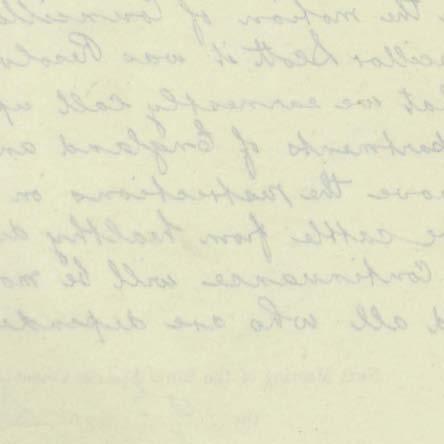 the motion of Councillo
ncillor Scott it was Resolv
hat we earnestly call up
partments of England an
move the restrictions on
e cattle from healthy di
Continuance will be mo
d all who are dependen
Next Meeting of the